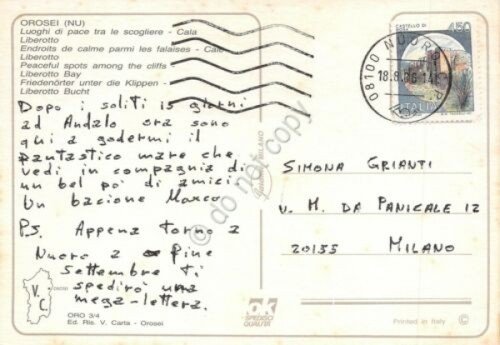 OROSEI (NU)
Luoghi di pace tra le scogliere - Cala
Liberotto
Endroits de calme parmi les falaises - Cale
Liberotto
Peaceful spots among the cliffs
Liberotto Bay
Friedenörter unter die Klippen -
Liberotto Bucht
CASTELLO DI
450
ITALIA
08100 NUORO
18.8.86
Dopo i soliti 15 giorni
ad Andalo ora sono
qui a godermi il
fantastico mare che
vedi in compagnia di
un bel po' di amici.
Un bacione Marco
P.S. Appena torno a
Nuoro a fine
settembre ti
spedirò una
mega-lettera.
SIMONA GRIANTI
V. M. DA PANICALE 12
20155 MILANO
MILANO
do not copy
V.
C.
OROSEI
ORO 3/4
Ed. Ris. V. Carta - Orosei
OK
SPEDISCI
QUALITÀ
Printed in Italy
©